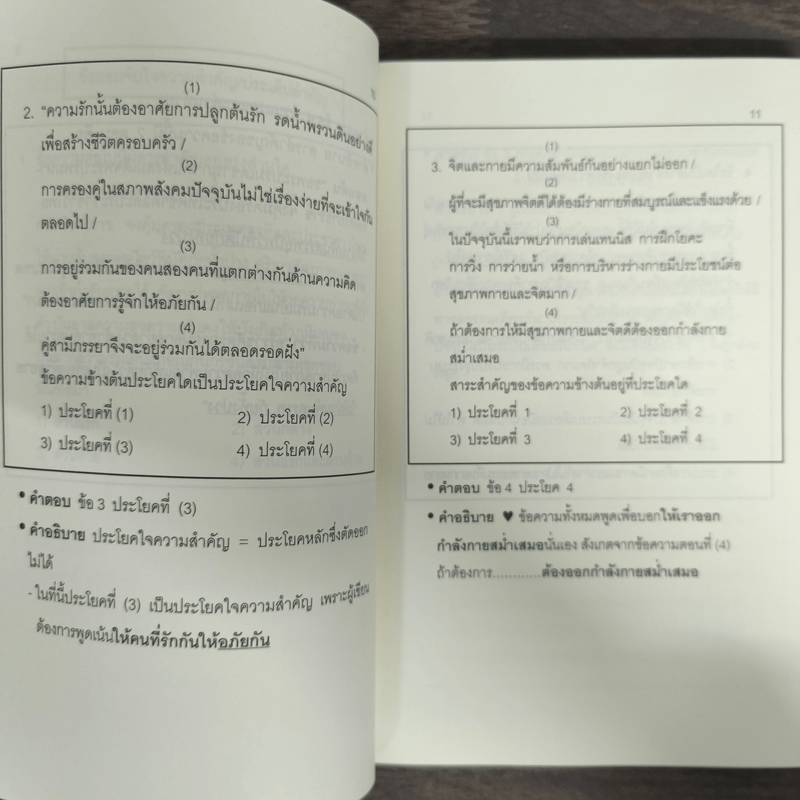 (1)
2. "ความรักนั้นต้องอาศัยการปลูกต้นรัก รดน้ำพรวนดินอย่างดี
เพื่อสร้างชีวิตครอบครัว /
(2)
การครองคู่ในสภาพสังคมปัจจุบันไม่ใช่เรื่องง่ายที่จะเข้าใจกัน
ตลอดไป /
(3)
การอยู่ร่วมกันของคนสองคนที่แตกต่างกันด้านความคิด
ต้องอาศัยการรู้จักให้อภัยกัน /
(4)
คู่สามีภรรยาจึงจะอยู่ร่วมกันได้ตลอดรอดฝั่ง"
ข้อความข้างต้นประโยคใดเป็นประโยคใจความสำคัญ
1) ประโยคที่ (1) 2) ประโยคที่ (2)
3) ประโยคที่ (3) 4) ประโยคที่ (4)
• คำตอบ ข้อ 3 ประโยคที่ (3)
• คำอธิบาย ประโยคใจความสำคัญ = ประโยคหลักซึ่งตัดออก
ไม่ได้
- ในที่นี้ประโยคที่ (3) เป็นประโยคใจความสำคัญ เพราะผู้เขียน
ต้องการพูดเน้นให้คนที่รักกันให้อภัยกัน
11
(1)
3. จิตและกายมีความสัมพันธ์กันอย่างแยกไม่ออก /
(2)
ผู้ที่จะมีสุขภาพจิตดีได้ต้องมีร่างกายที่สมบูรณ์และแข็งแรงด้วย /
(3)
ในปัจจุบันนี้เราพบว่าการเล่นเทนนิส การฝึกโยคะ
การวิ่ง การว่ายน้ำ หรือการบริหารร่างกายมีประโยชน์ต่อ
สุขภาพกายและจิตมาก /
(4)
ถ้าต้องการให้มีสุขภาพกายและจิตดีต้องออกกำลังกาย
สม่ำเสมอ
สาระสำคัญของข้อความข้างต้นอยู่ที่ประโยคใด
1) ประโยคที่ 1 2) ประโยคที่ 2
3) ประโยคที่ 3 4) ประโยคที่ 4
• คำตอบ ข้อ 4 ประโยค 4
• คำอธิบาย ♥ ข้อความทั้งหมดพูดเพื่อบอกให้เราออก
กำลังกายสม่ำเสมอนั่นเอง สังเกตจากข้อความตอนที่ (4)
ถ้าต้องการ............ต้องออกกำลังกายสม่ำเสมอ